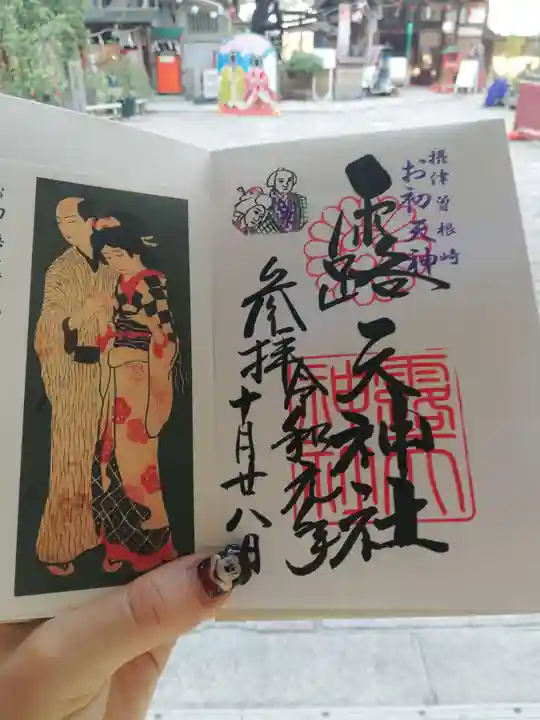 摂津曽根崎
お初天神
露天神社
令和元年
参拝十月廿八日